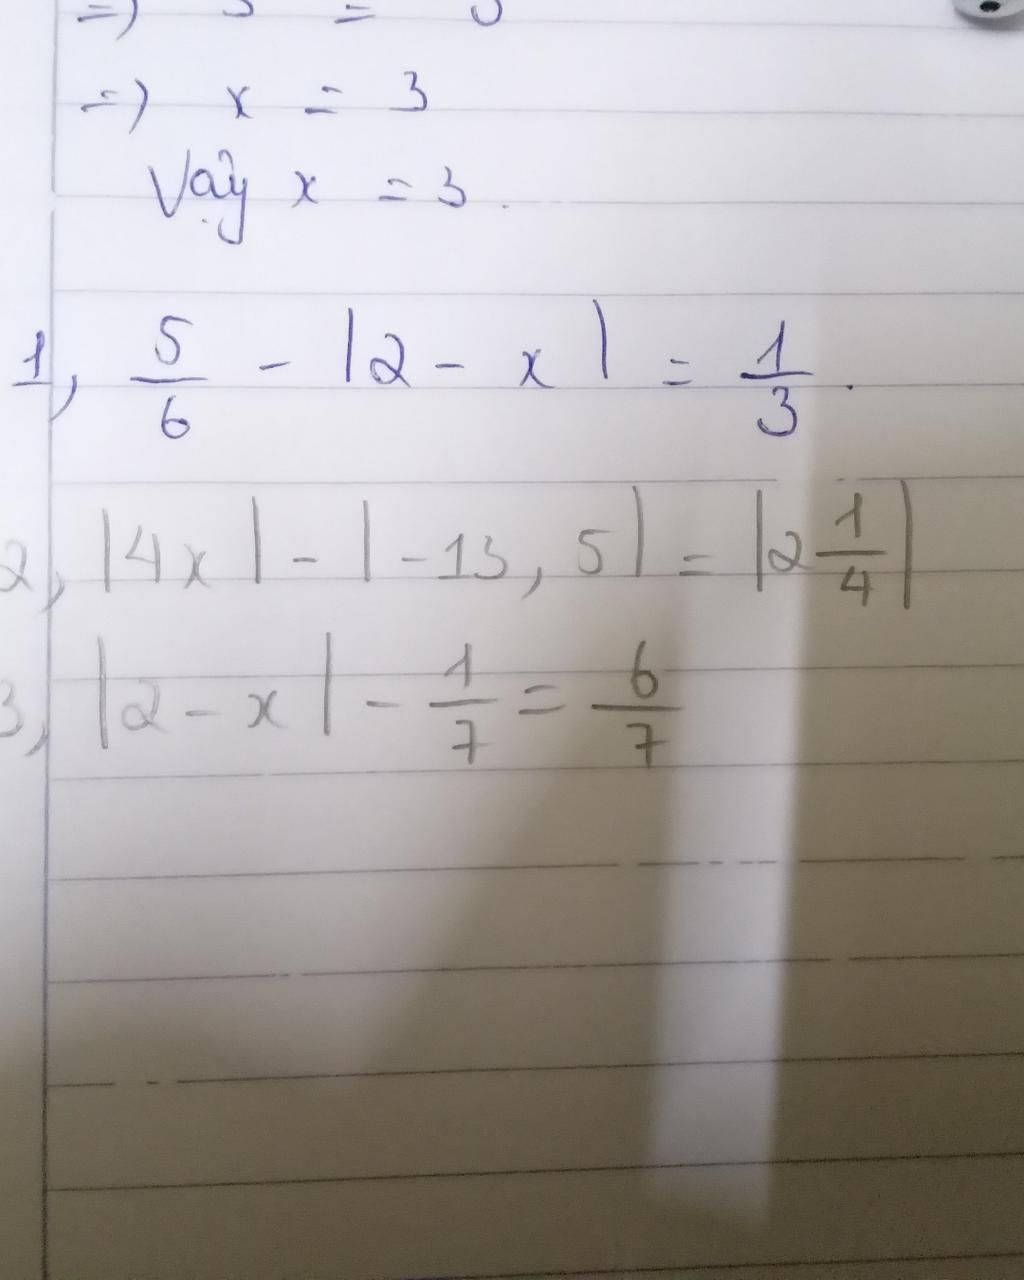 => x = 3
Vậy x = 3.
1, 5/6 - |2 - x| = 1/3.
2, |4x| - |-13,5| = |2 1/4|
3, |2 - x| - 1/7 = 6/7